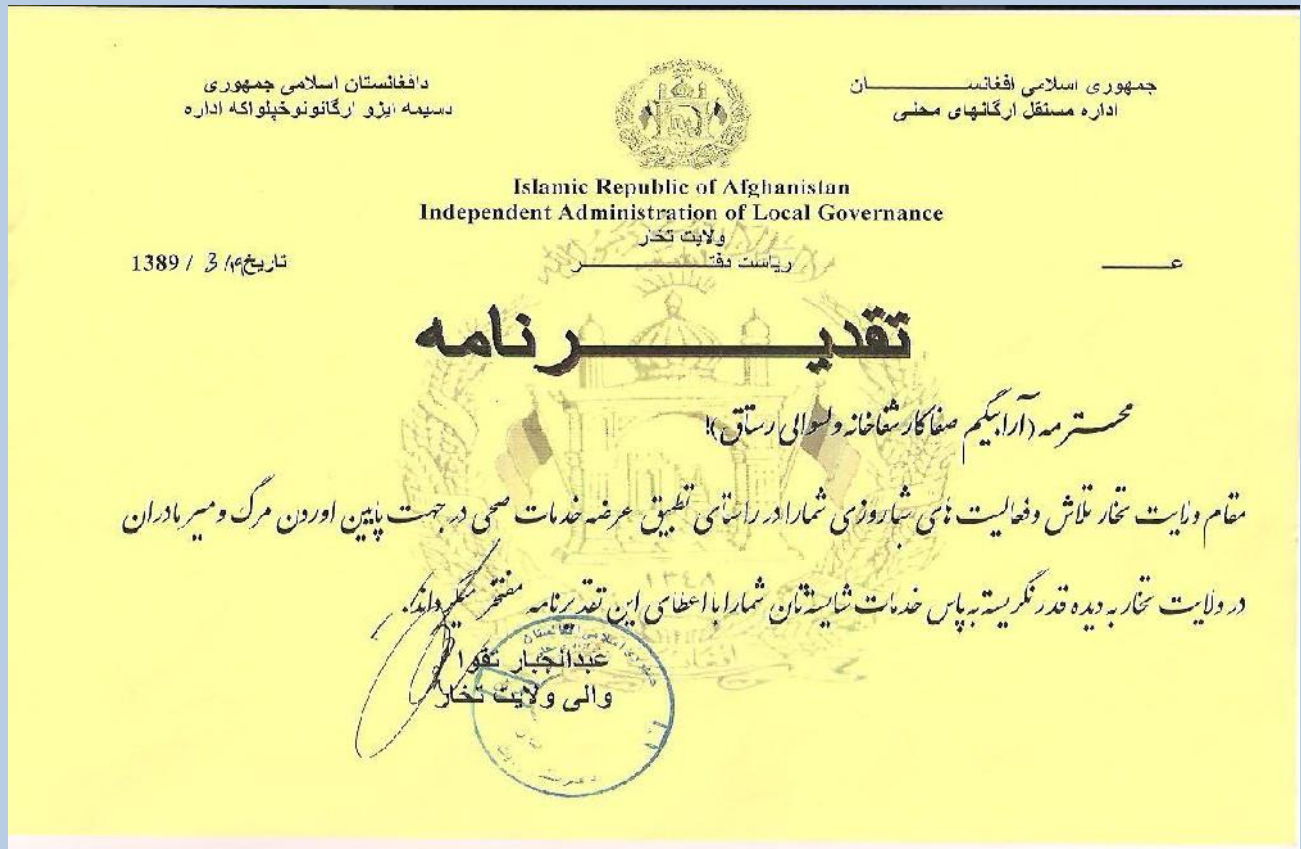 جمهوری اسلامی افغانســـــــــان
اداره مستقل ارگانهای محلی
دافغانستان اسلامی جمهوری
دسیمه ایزو ارگانونوخپلواکه اداره
Islamic Republic of Afghanistan
Independent Administration of Local Governance
ولایت تخار
ریاست دفتـــــــــر
عـــــ
تاریخ / 3 / 1389
تقدیـــــــــر نامه
محـــترمه (آرابیگم صفاکار شفاخانه ولسوالی رستاق)!
مقام ولایت تخار تلاش وفعالیت های شباروزی شمارا در راستای تطبیق عرضه خدمات صحی در جهت پایین اوردن مرگ ومیر مادران
در ولایت تخار به دیده قدر نگریسته به پاس خدمات شایسته تان شمارا با اعطای این تقدیرنامه مفتخر میگرداند.
عبدالجبار تقوا
والی ولایت تخار
۱۳۴۸